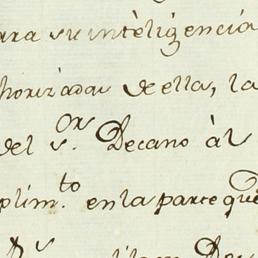 ara su inteligencia
horizadas de ella, la
del S.or Decano àl
plim.to en la parte que